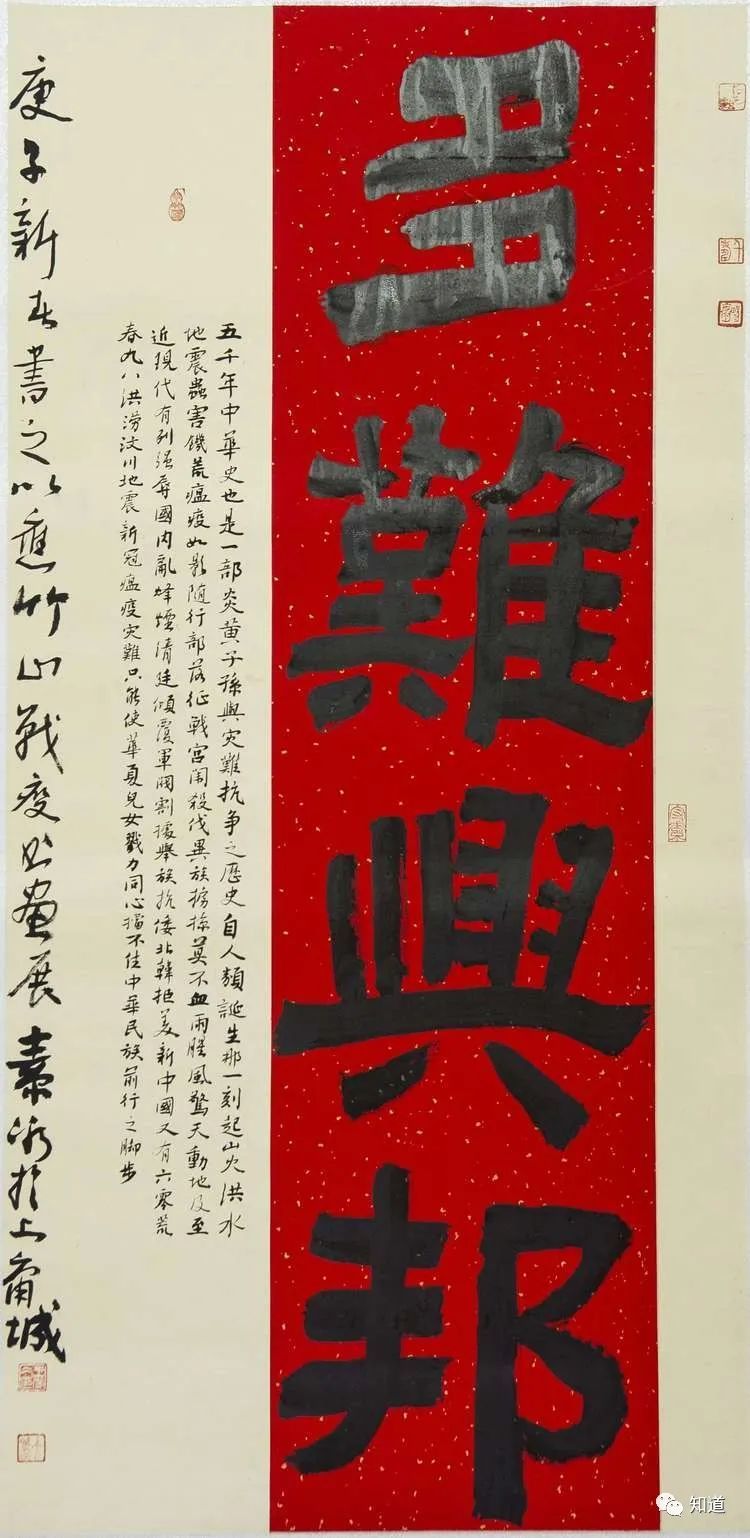 多難興邦
五千年中華史也是一部炎黄子孫與灾難抗争之歷史自人類誕生那一刻起山火洪水
地震蟲害饑荒瘟疫如影随行部落征戰宫闱殺伐異族掳掠莫不血雨腥風驚天動地及至
近現代有列强辱國内亂烽煙清廷傾覆軍閥割據舉族抗倭北韓拒美新中國又有六零荒
春九八洪涝汶川地震新冠瘟疫灾難只能使華夏兒女戮力同心擋不住中華民族前行之脚步
庚子新春書之以應竹山戰疫書畫展素冰於上庸城
知道